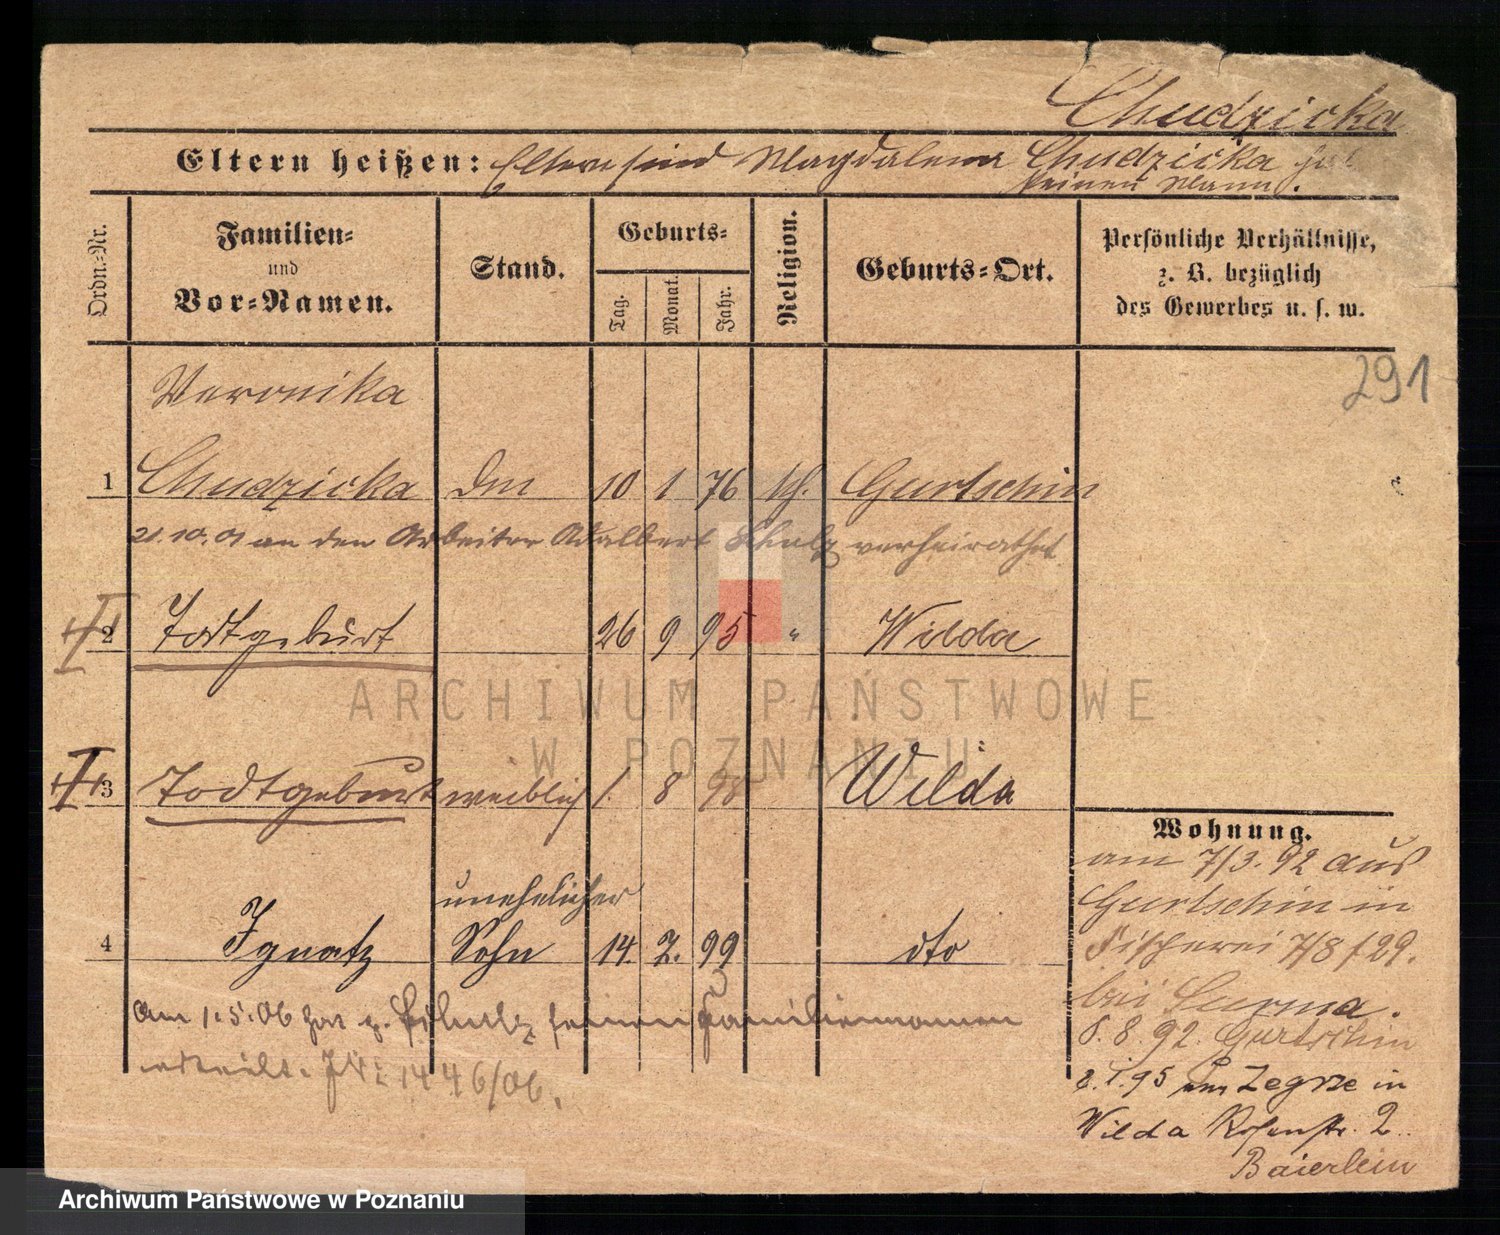 Chudzicka
Eltern heißen: Eltern sind Magdalena Chudzicka hat
keinen Mann.
Ordn.-Nr.
Familien-
und
Vor-Namen.
Stand.
Geburts-
Tag.
Monat.
Jahr.
Religion.
Geburts-Ort.
Persönliche Verhältnisse,
z. B. bezüglich
des Gewerbes u. s. w.
291
Veronika
1 Chudzicka 10 1 76 kth. Gurtschin
21.10.01 an den Arbeiter Adalbert Schulz verheirathet
2 Todtgeburt 26 9 95 " Wilda
3 Todtgeburt weiblich 1. 8 98 Wilda
unehelicher
4 Ignatz Sohn 14. 7. 99 dto
Am 1.5.06 hat p. Schulz seinen Familiennamen
erteilt. JN: 1446/06.
Wohnung.
am 7/3. 92 aus
Gurtschin in
Fischerei 7/8 f 29.
bei Surma.
8. 8. 92. Gurtschin
2. 1. 95 von Zegrze in
Wilda Rosenstr. 2.
Baierlein
ARCHIWUM PAŃSTWOWE
W POZNANIU
Archiwum Państwowe w Poznaniu